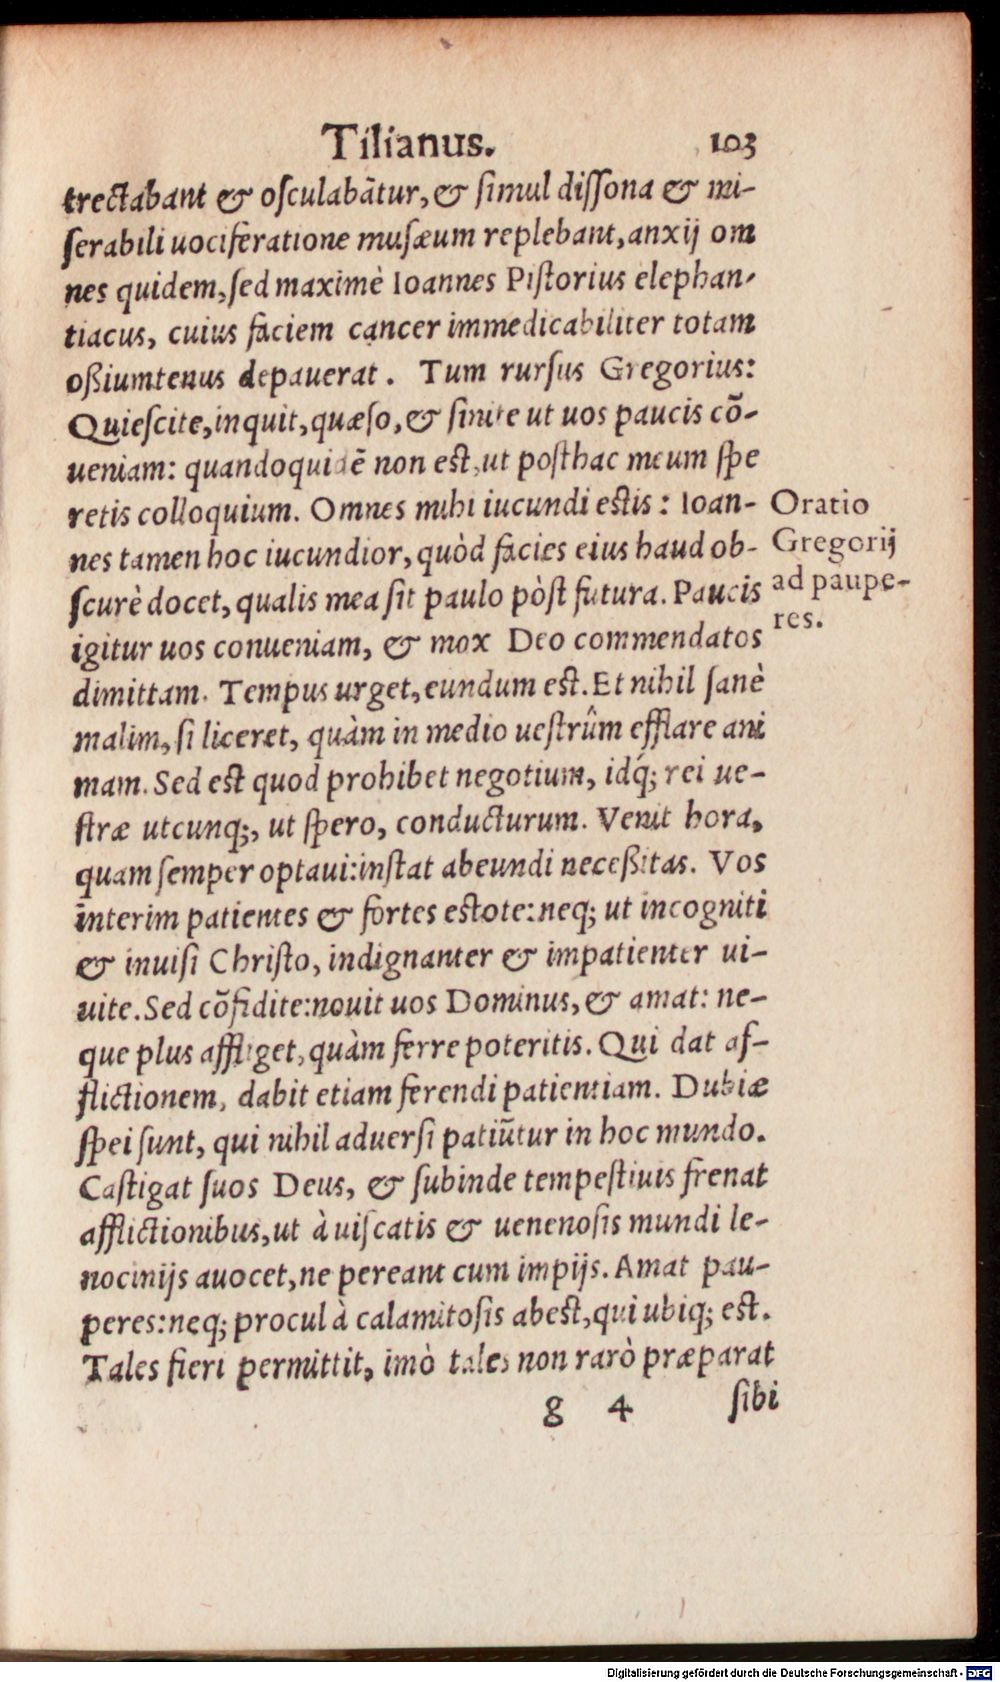 Tilianus. 103
trectabant & oſculabātur, & ſimul diſſona & mi-
ſerabili uociferatione muſæum replebant, anxij om
nes quidem, ſed maximè Ioannes Piſtorius elephan-
tiacus, cuius faciem cancer immedicabiliter totam
oßiumtenus depauerat. Tum rurſus Gregorius:
Quieſcite, inquit, quæſo, & ſinite ut uos paucis cō-
ueniam: quandoquidē non est, ut poſthac meum ſpe
retis colloquium. Omnes mihi iucundi estis: Ioan-
nes tamen hoc iucundior, quòd facies eius haud ob-
ſcurè docet, qualis mea ſit paulo pòſt futura. Paucis
igitur uos conueniam, & mox Deo commendatos
dimittam. Tempus urget, eundum est. Et nihil ſanè
malim, ſi liceret, quàm in medio ueſtrûm efflare ani
mam. Sed est quod prohibet negotium, idq́; rei ue-
ſtræ utcunq;, ut ſpero, conducturum. Venit hora,
quam ſemper optaui: inſtat abeundi neceßitas. Vos
interim patientes & fortes estote: neq; ut incogniti
& inuiſi Chriſto, indignanter & impatienter ui-
uite. Sed cōfidite: nouit uos Dominus, & amat: ne-
que plus affliget, quàm ferre poteritis. Qui dat af-
flictionem, dabit etiam ferendi patientiam. Dubiæ
ſpei ſunt, qui nihil aduerſi patiūtur in hoc mundo.
Caſtigat ſuos Deus, & ſubinde tempeſtiuis frenat
afflictionibus, ut à uiſcatis & uenenoſis mundi le-
nocinijs auocet, ne pereant cum impijs. Amat pau-
peres: neq; procul à calamitoſis abest, qui ubiq; est.
Tales fieri permittit, imò tales non rarò præparat
g 4 ſibi
Oratio
Gregorij
ad paupe-
res.
Digitalisierung gefördert durch die Deutsche Forschungsgemeinschaft - DFG